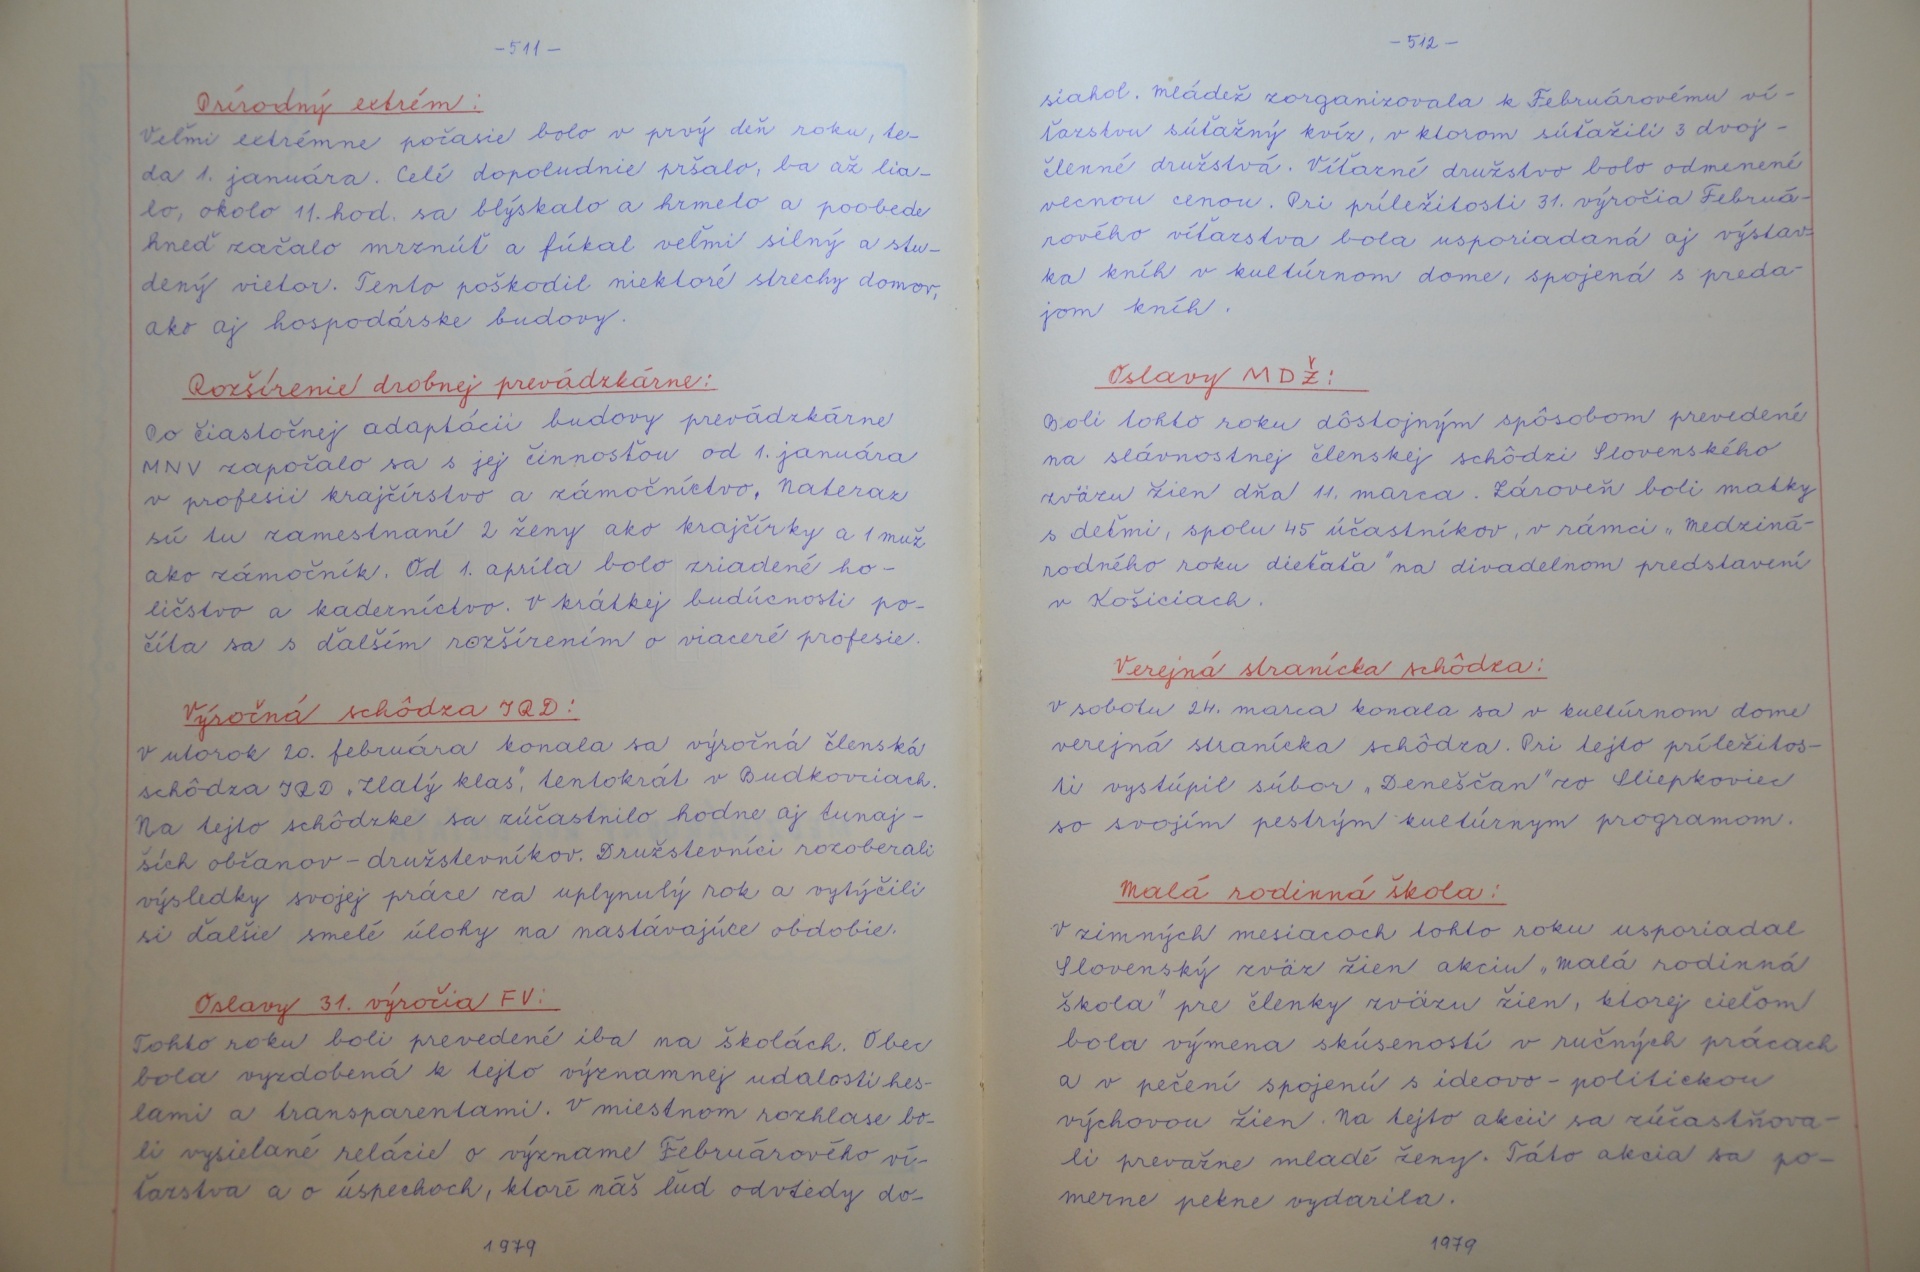 -511-
Prírodný extrém:
Veľmi extrémne počasie bolo v prvý deň roku, te-
da 1. januára. Celé dopoludnie pršalo, ba až lia-
lo, okolo 11. hod. sa blýskalo a hrmelo a poobede
hneď začalo mrznúť a fúkal veľmi silný a stu-
dený vietor. Tento poškodil niektoré strechy domov,
ako aj hospodárske budovy.
Rozšírenie drobnej prevádzkárne:
Po čiastočnej adaptácii budovy prevádzkárne
MNV započalo sa s jej činnosťou od 1. januára
v profesii krajčírstvo a zámočníctvo. Nateraz
sú tu zamestnaní 2 ženy ako krajčírky a 1 muž
ako zámočník. Od 1. apríla bolo zriadené ho-
ličstvo a kaderníctvo. V krátkej budúcnosti po-
číta sa s ďalším rozšírením o viaceré profesie.
Výročná schôdza JRD:
V utorok 20. februára konala sa výročná členská
schôdza JRD „Zlatý klas", tentokrát v Budkovciach.
Na tejto schôdzke sa zúčastnilo hodne aj tunaj-
ších občanov - družstevníkov. Družstevníci rozoberali
výsledky svojej práce za uplynulý rok a vytýčili
si ďalšie smelé úlohy na nastávajúce obdobie.
Oslavy 31. výročia FV:
Tohto roku boli prevedené iba na školách. Obec
bola vyzdobená k tejto významnej udalosti hes-
lami a transparentami. V miestnom rozhlase bo-
li vysielané relácie o význame Februárového ví-
ťazstva a o úspechoch, ktoré náš ľud odvtedy do-
1979
-512-
siahol. Mládež zorganizovala k Februárovému ví-
ťazstvu súťažný kvíz, v ktorom súťažili 3 dvoj-
členné družstvá. Víťazné družstvo bolo odmenené
vecnou cenou. Pri príležitosti 31. výročia Februá-
rového víťazstva bola usporiadaná aj výstav-
ka kníh v kultúrnom dome, spojená s preda-
jom kníh.
Oslavy MDŽ:
Boli tohto roku dôstojným spôsobom prevedené
na slávnostnej členskej schôdzi Slovenského
zväzu žien dňa 11. marca. Zároveň boli matky
s deťmi, spolu 45 účastníkov, v rámci „Medziná-
rodného roku dieťaťa" na divadelnom predstavení
v Košiciach.
Verejná stranícka schôdza:
V sobotu 24. marca konala sa v kultúrnom dome
verejná stranícka schôdza. Pri tejto príležitos-
ti vystúpil súbor „Denešćan" zo Sliepkoviec
so svojím pestrým kultúrnym programom.
Malá rodinná škola:
V zimných mesiacoch tohto roku usporiadal
Slovenský zväz žien akciu „Malá rodinná
škola" pre členky zväzu žien, ktorej cieľom
bola výmena skúseností v ručných prácach
a v pečení spojenú s ideovo-politickou
výchovou žien. Na tejto akcii sa zúčastňova-
li prevažne mladé ženy. Táto akcia sa po-
merne pekne vydarila.
1979